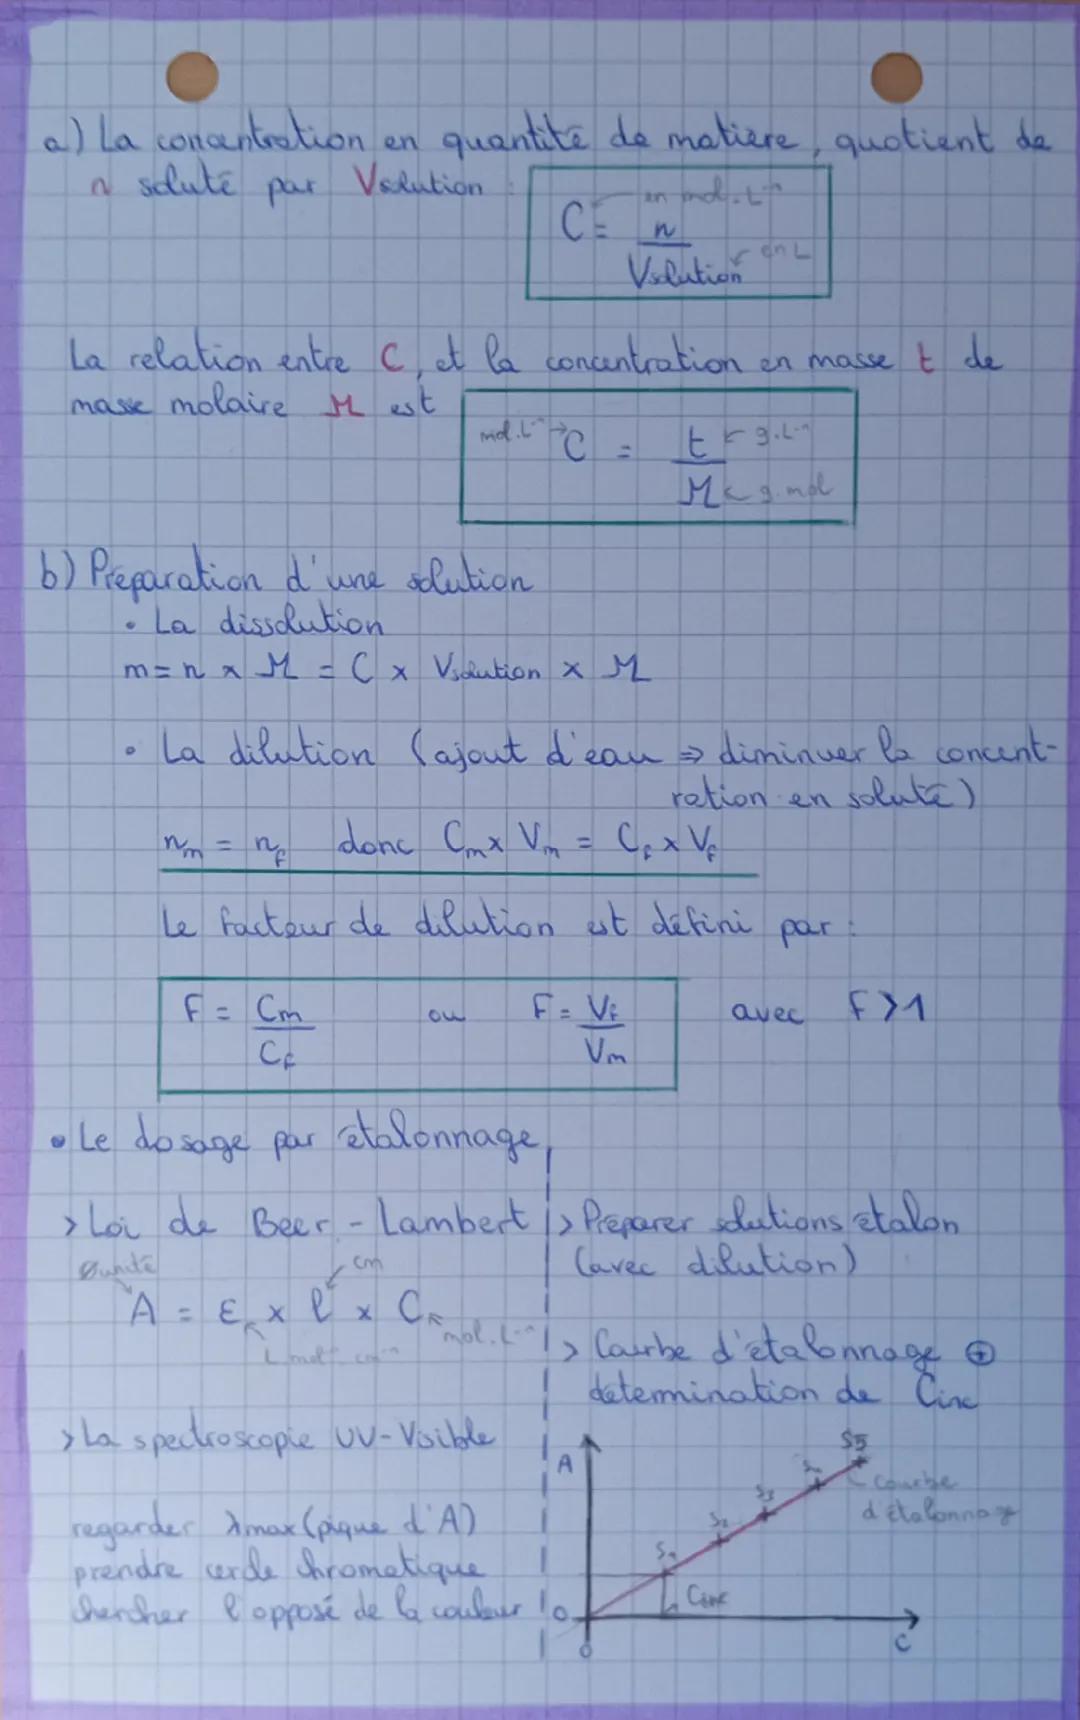 a) La concentration en quantité de matière, quotient de
n soluté par Vsolution :
C = n / Vsolution
en mol.L⁻¹
en L
La relation entre C, et la concentration en masse t de
masse molaire M est
mol.L⁻¹ → C = t / M
g.L⁻¹
g.mol
b) Préparation d'une solution
• La dissolution
m = n x M = C x Vsolution x M
• La dilution (ajout d'eau ⇒ diminuer la concent-
ration en soluté)
nm = nf donc Cm x Vm = Cf x Vf
Le facteur de dilution est défini par :
F = Cm / Cf ou F = Vf / Vm avec F > 1
• Le dosage par étalonnage
> Loi de Beer - Lambert
Ø unité
cm
A = ε x l x C
mol.L⁻¹
L mol⁻¹ cm⁻¹
> La spectroscopie UV-Visible
regarder λmax (pique d'A)
prendre cercle chromatique
chercher l'opposé de la couleur
> Préparer solutions étalon
(avec dilution)
> Courbe d'étalonnage ⊕
détermination de Cinc
A
S5
S3
S2
S1
courbe
d'étalonnage
Cinc
O
O
C